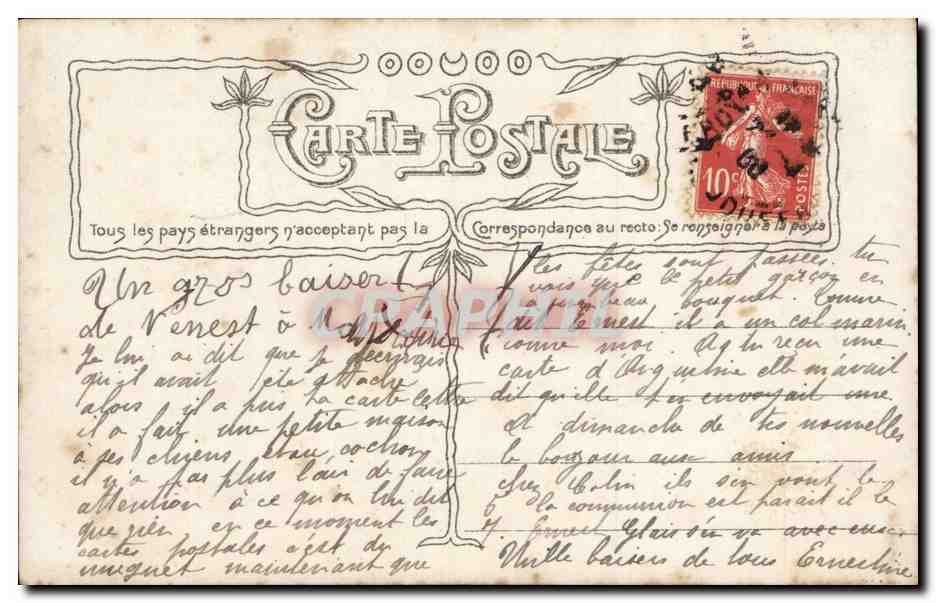 CARTE POSTALE
RÉPUBLIQUE FRANÇAISE
10c
POSTES
Tous les pays étrangers n'acceptent pas la Correspondance au recto: Se renseigner à la poste
Un gros baiser!
de Nenest à
Je lui ai dit que je
qu'il avait été
alors il a pris la carte cette
il a fait une petite maison
à ses chiens cochon
il n'a pas plus l'air de faire
attention à ce qu'on lui dit
que rien en ce moment les
cartes postales c'est du
muguet maintenant que
les fêtes sont passées. tu
vois que le petit garçon en
beau bouquet. comme
Ernest il a un col marin
comme moi. As tu reçu une
carte d' elle m'avait
dit qu'elle t'en envoyait une
dimanche de tes nouvelles
le bonjour aux amis
chez ils s'en vont le
6 la communion est parait il le
7. Ernest s'en va avec eux
Mille baisers de tous Ernestine
CRAPHIL